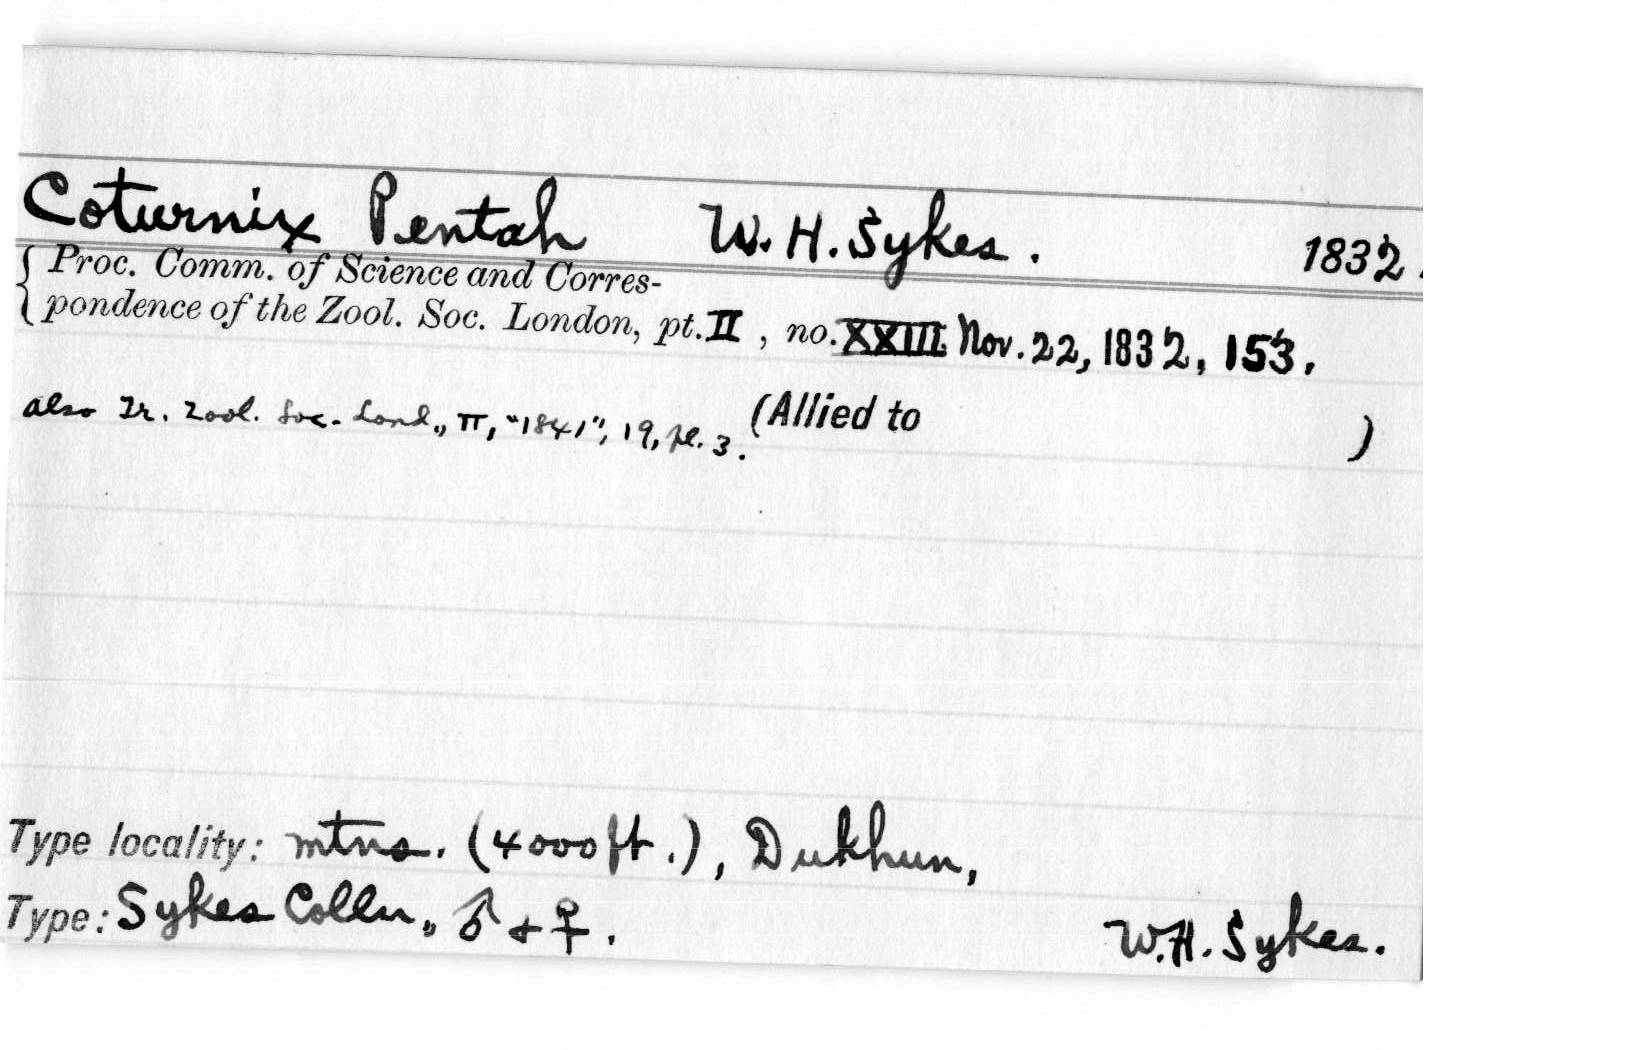 Coturnix Pentah W.H. Sykes. 1832.
Proc. Comm. of Science and Corres-
pondence of the Zool. Soc. London, pt. II, no. XXIII Nov. 22, 1832, 153.
also Tr. Zool. Soc. Lond., II, "1841", 19, pl. 3. (Allied to )
Type locality: mtns. (4000 ft.), Dukhun,
Type: Sykes Colln., ♂ + ♀. W.H. Sykes.